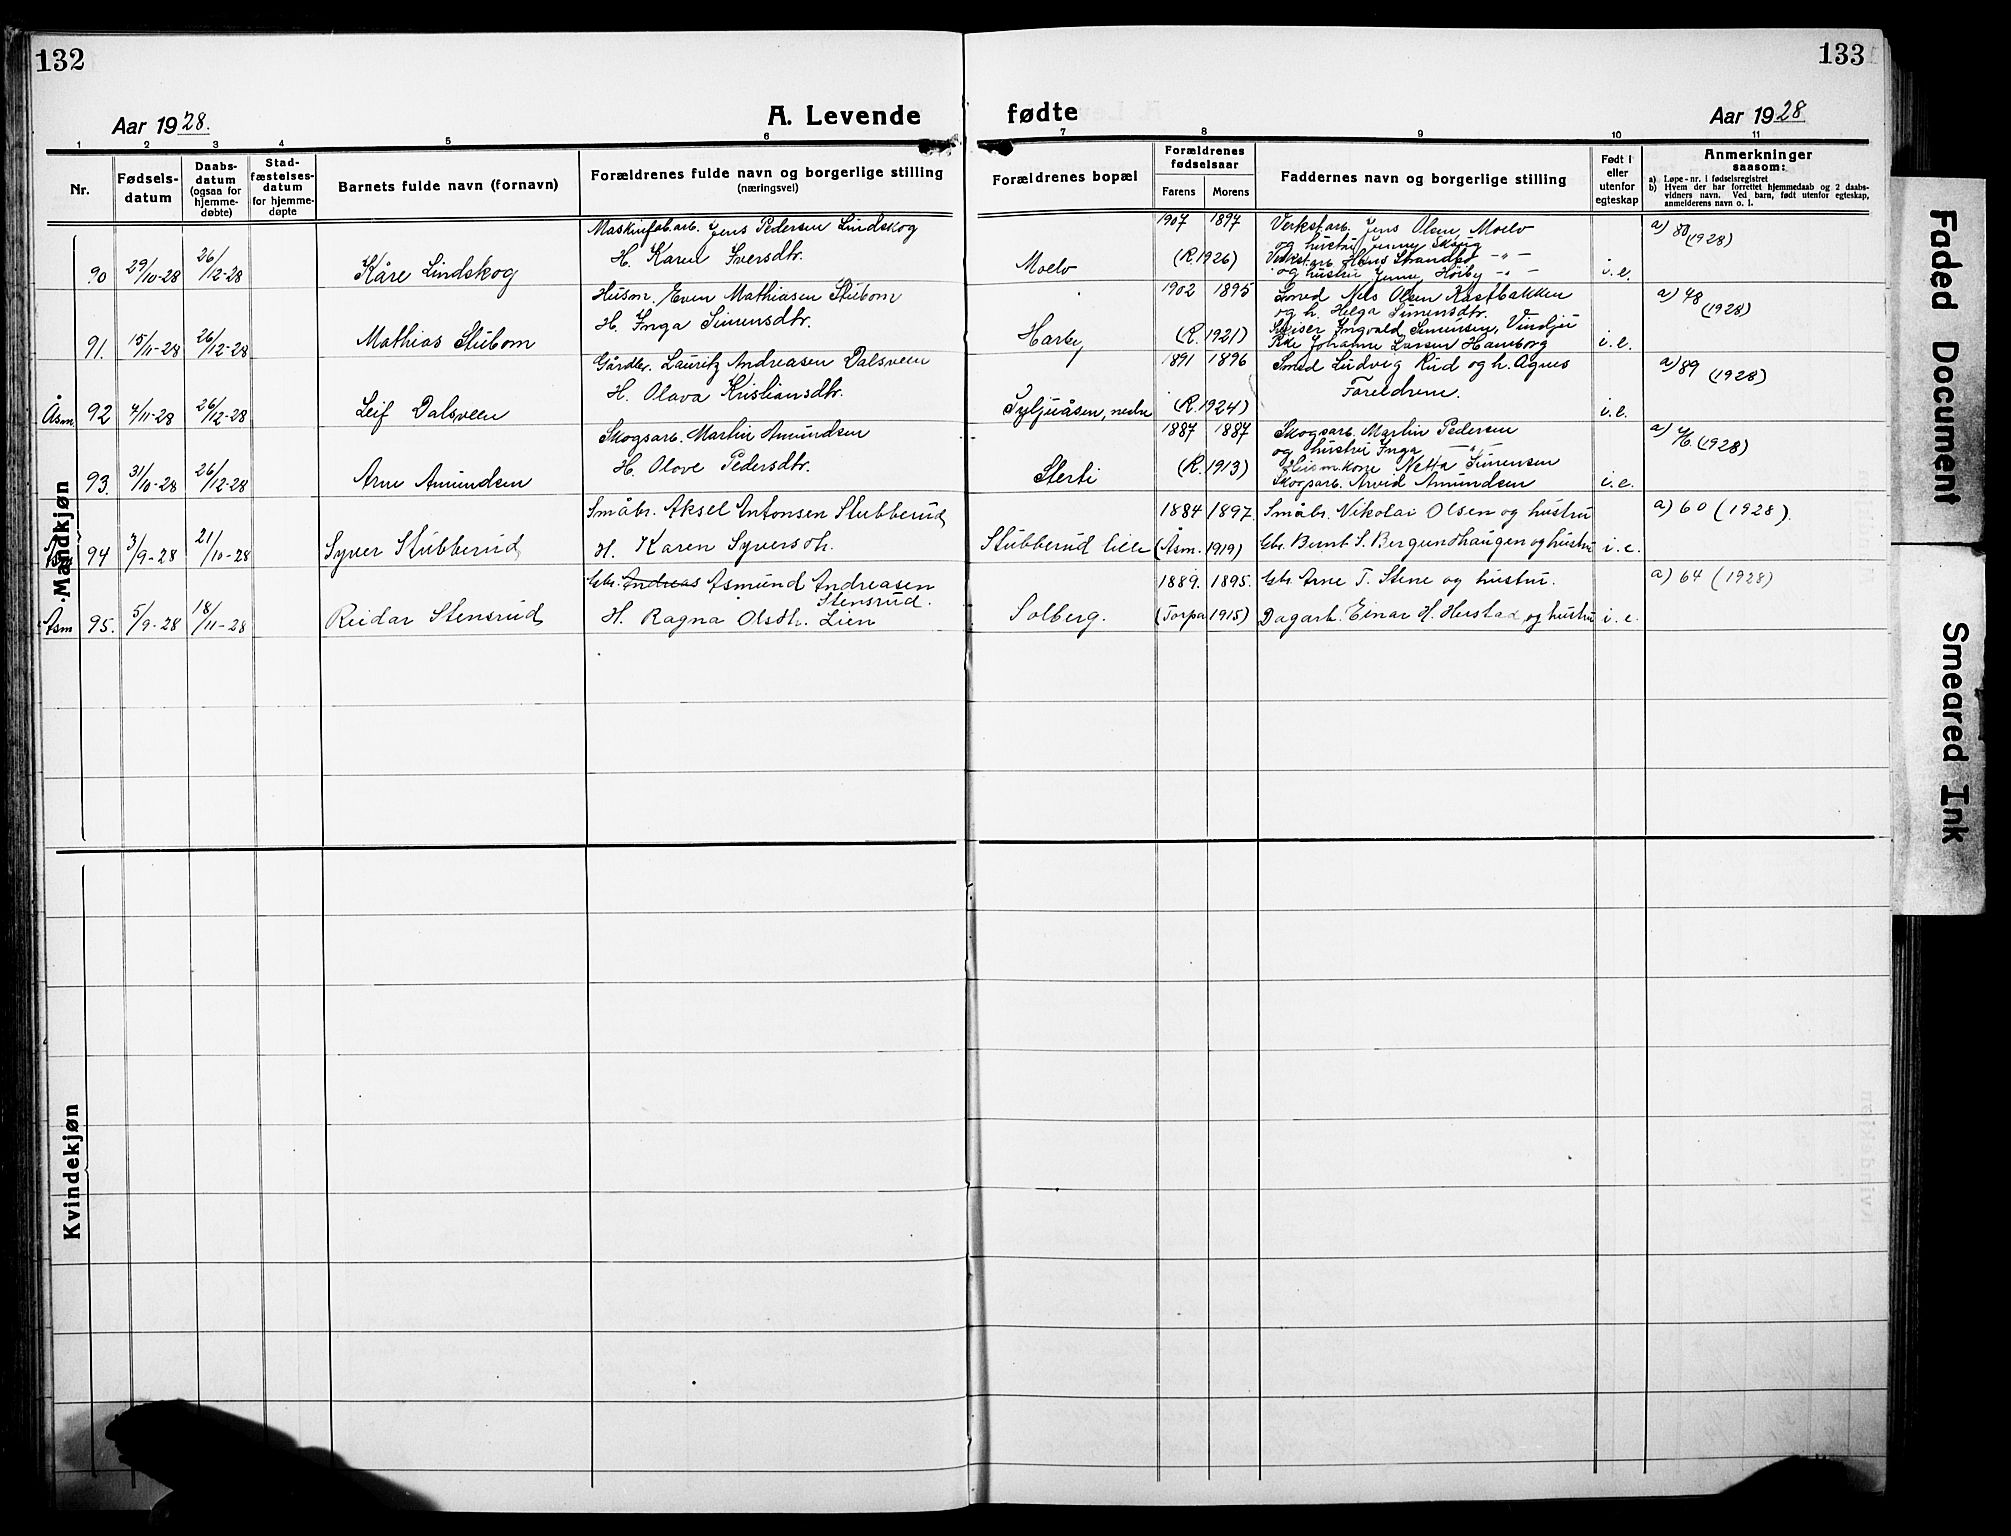 132
133
A. Levende fødte
Aar 1928.
Aar 1928
1 2 3 4 5 6 7 8 9 10 11
Nr.
Fødsels-
datum
Daabs-
datum
(ogsaa for
hjemme-
døbte)
Stad-
fæstelses-
datum
for hjemme-
døpte
Barnets fulde navn (fornavn)
Forældrenes fulde navn og borgerlige stilling
(næringsvei)
Forældrenes bopæl
Forældrenes
fødselsaar
Farens Morens
Faddernes navn og borgerlige stilling
Født i
eller
utenfor
egteskap
Anmerkninger
saasom:
a) Løpe-nr. i fødselsregistret
b) Hvem der har forrettet hjemmedaab og 2 daabs-
vidners navn. Ved barn, født utenfor egteskap,
anmelderens navn o. l.
Mandkjøn
90 29/10-28 26/12-28 Kåre Lindskog
Maskinfab.arb. Jens Pedersen Lindskog
H. Karen Iversdtr.
Moelv
1907 1897
(R. 1926)
Verkstarb. Jens Olsen, Moelv
og hustru Jenny Skaug
Verkst.arb. Hans Strandbo -"-
og hustru Jenny Høiby -"-
i. e.
a) 80 (1928)
91. 15/11-28 26/12-28 Mathias Stubom
Husm. Even Mathiasen Stubom
H. Inga Simensdtr.
Harby
1902 1895
(R. 1921)
Smed Nils Olsen Kastbakken
og h. Helga Simensdtr.
Ingvald Simensen, Vindju
Pike Johanne Larsen Hamborg
i. e.
a) 48 (1928)
Åsm. 92 4/11-28 26/12-28 Leif Dalsveen
Gårdbr. Lauritz Andreasen Dalsveen
H. Olava Kristiansdtr.
nedre
1891 1896
(R. 1924)
Smed Ludvig Rud og h. Agnes
Foreldrene.
i. e.
a) 89 (1928)
93. 31/10-28 26/12-28 Arne Amundsen
Skogsarb. Martin Amundsen
H. Olove Pedersdtr.
Sterti
1887 1887
(R. 1913)
Skogsarb. Martin Pedersen
og hustru Inga -"-
Husm.kone Netta Simensen
Skogsarb. Arvid Amundsen
i. e.
a) (1928)
94 3/9-28 21/10-28 Syver Stubberud
Småbr. Aksel Antonsen Stubberud
H. Karen Syversdtr.
Stubberud lille
1884 1897.
(Åsm. 1919)
Småbr. Nikolai Olsen og hustru
Gbr. Bernt S. Bergundhaugen og hustru
i. e.
a) 60 (1928).
Åsm 95. 5/9-28 18/11-28 Reidar Stensrud
Gbr. Andreas Asmund Andreasen
Stensrud.
H. Ragna Olsdtr. Lien
Solberg.
1889. 1895.
(Torpa 1915)
Gbr. Arne T. Stene og hustru.
Dagarb. Einar H. Herstad og hustru
i. e.
a) 64 (1928)
Kvindekjøn
Faded Document
Smeared Ink